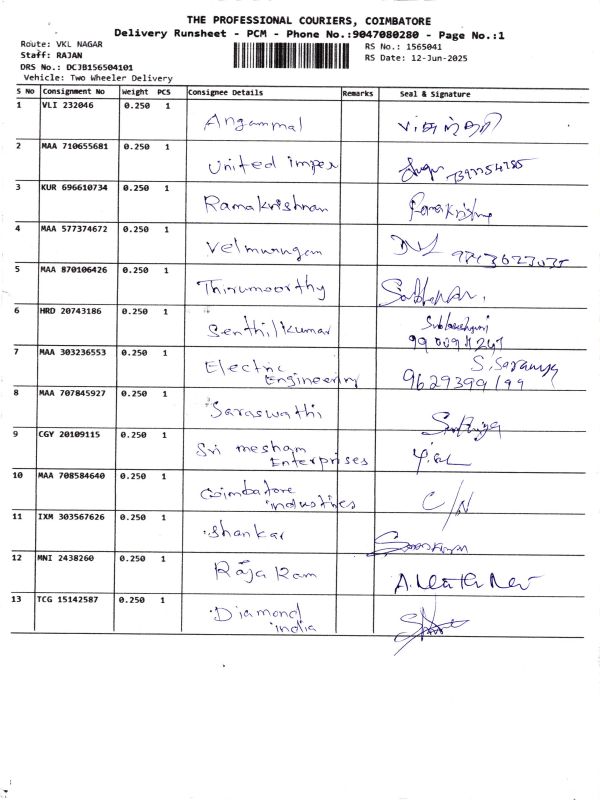 THE PROFESSIONAL COURIERS, COIMBATORE
Delivery Runsheet - PCM - Phone No.:9047080280 - Page No.:1
Route: VKL NAGAR
RS No.: 1565041
Staff: RAJAN
RS Date: 12-Jun-2025
DRS No.: DCJB156504101
Vehicle: Two Wheeler Delivery
S No Consignment No Weight PCS Consignee Details Remarks Seal & Signature
1 VLI 232046 0.250 1 Angammal
2 MAA 710655681 0.250 1 United impex
3 KUR 696610734 0.250 1 Ramakrishnan Ramakrishna
4 MAA 577374672 0.250 1 Velmurugan
5 MAA 870106426 0.250 1 Thirumoorthy
6 HRD 20743186 0.250 1 Senthilkumar
7 MAA 303236553 0.250 1 Electric S. Saranya
Engineering 9629399199
8 MAA 707845927 0.250 1 Saraswathi
9 CGY 20109115 0.250 1 Sri mesham
Enterprises
10 MAA 708584640 0.250 1 Coimbatore C/N
industries
11 IXM 303567626 0.250 1 Shankar
12 MNI 2438260 0.250 1 Raja Ram
13 TCG 15142587 0.250 1 Diamond
india